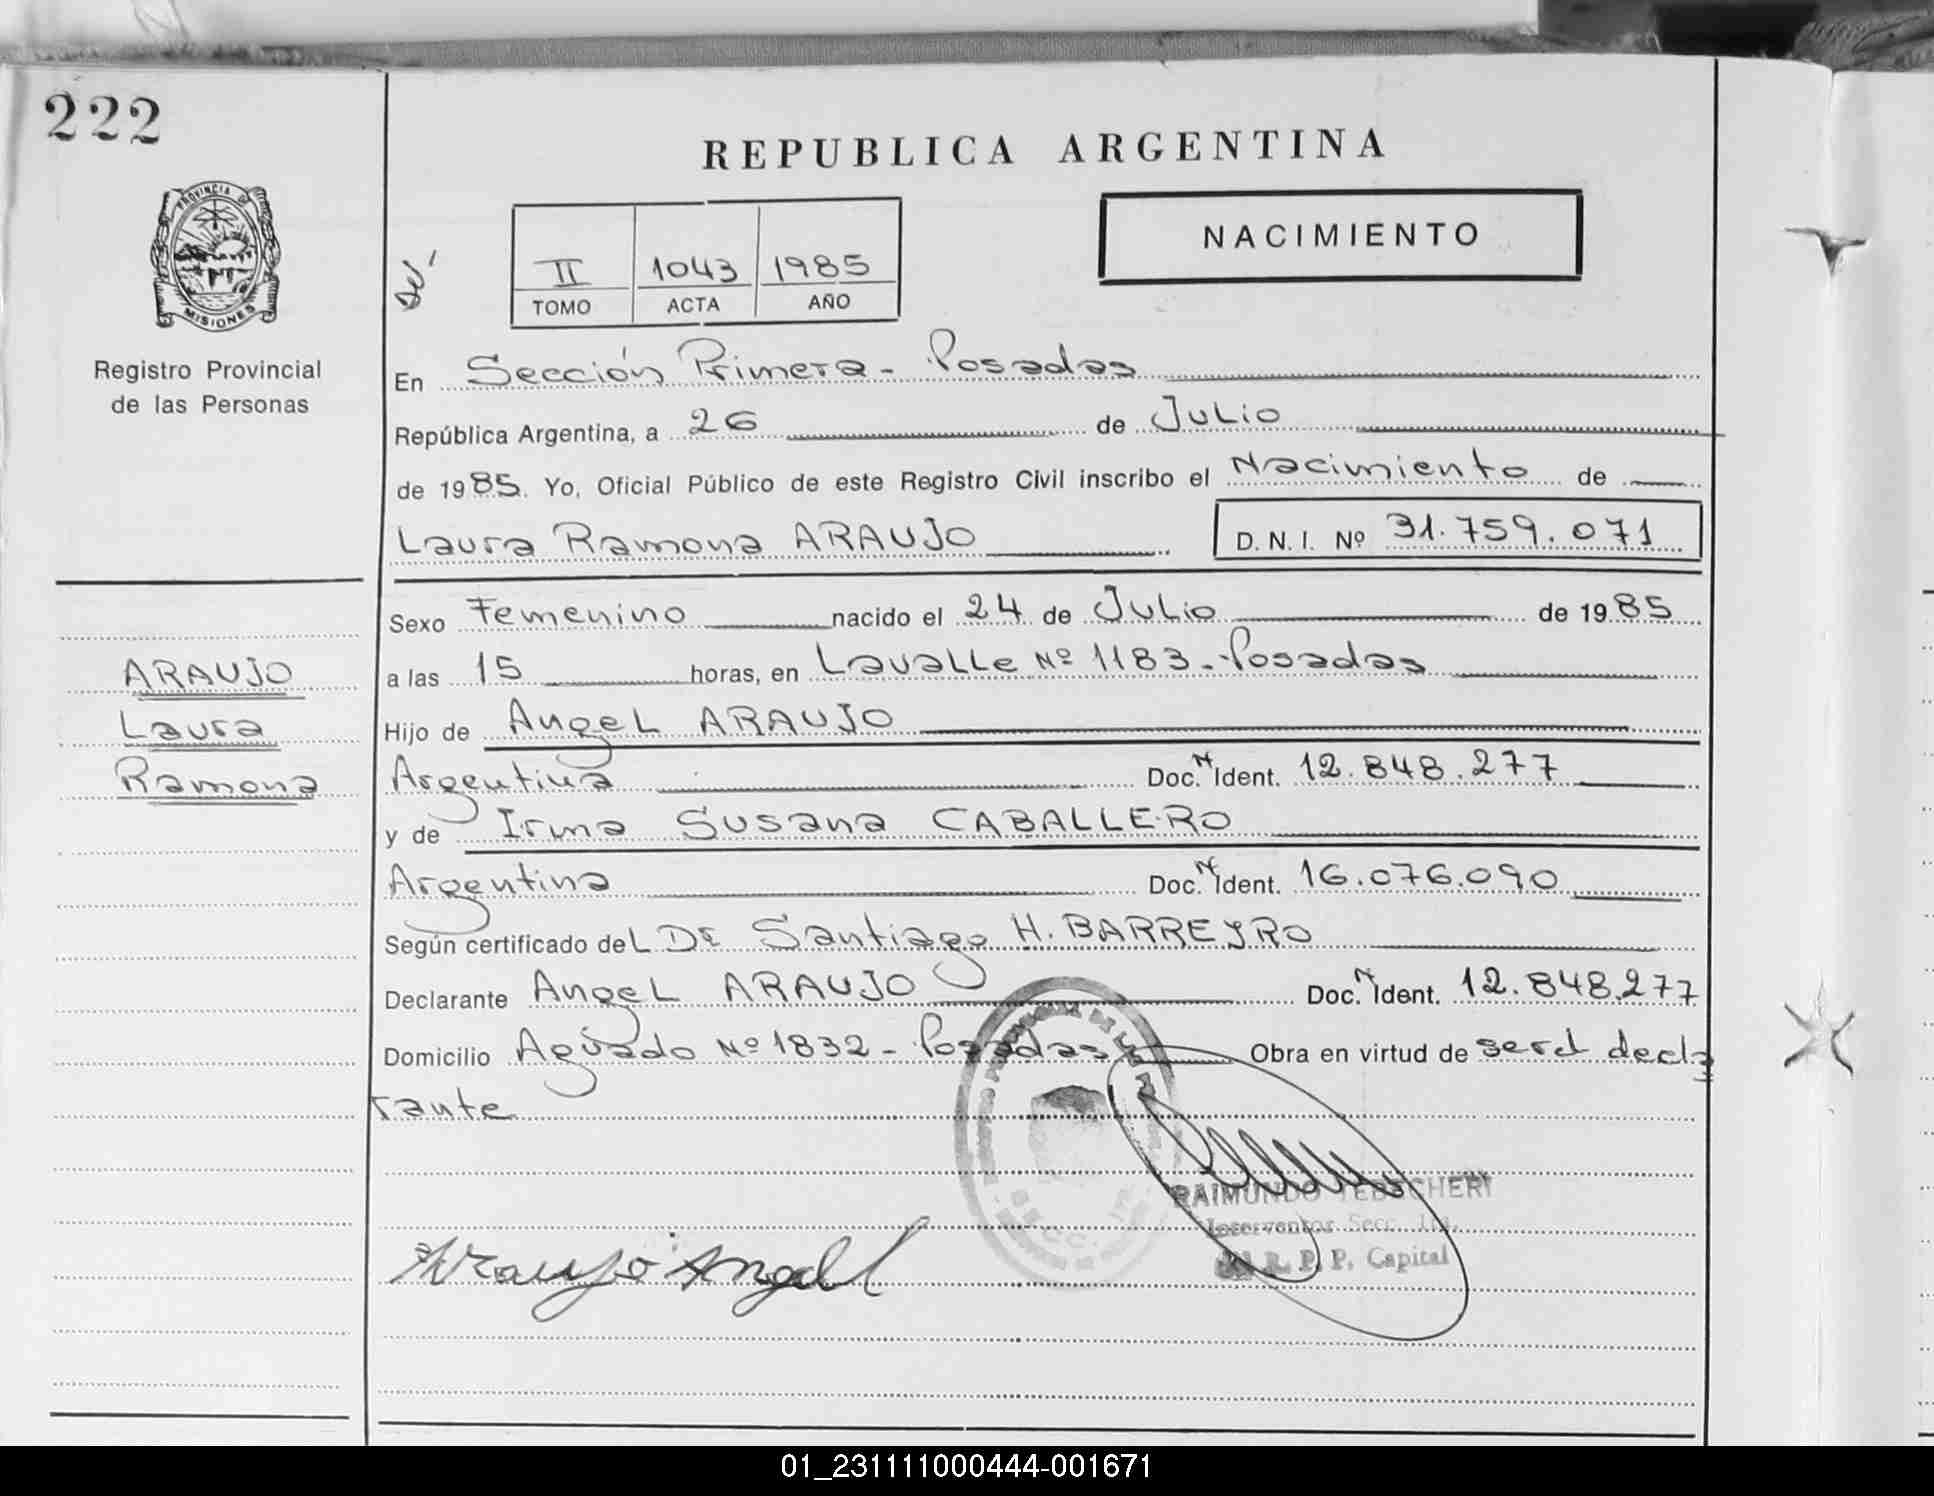 222
REPUBLICA ARGENTINA
PROVINCIA DE
MISIONES
Registro Provincial
de las Personas
II 1043 1985
TOMO ACTA AÑO
NACIMIENTO
En Sección Primera - Posadas
República Argentina, a 26 de Julio
de 1985. Yo, Oficial Público de este Registro Civil inscribo el Nacimiento de
Laura Ramona ARAUJO D.N.I. Nº 31.759.071
ARAUJO
Laura
Ramona
Sexo Femenino nacido el 24 de Julio de 1985
a las 15 horas, en Lavalle Nº 1183 - Posadas
Hijo de Angel ARAUJO
Argentina Doc. Nº Ident. 12.848.277
y de Irma Susana CABALLERO
Argentina Doc. Nº Ident. 16.076.090
Según certificado del Dr Santiago H. BARREYRO
Declarante Angel ARAUJO Doc. Nº Ident. 12.848.277
Domicilio Aguado Nº 1832 - Posadas Obra en virtud de ser el decla
rante
RAIMUNDO TEBSCHERI
Interventor Secc. 1ra.
R. P. P. Capital
Araujo Angel
01_231111000444-001671